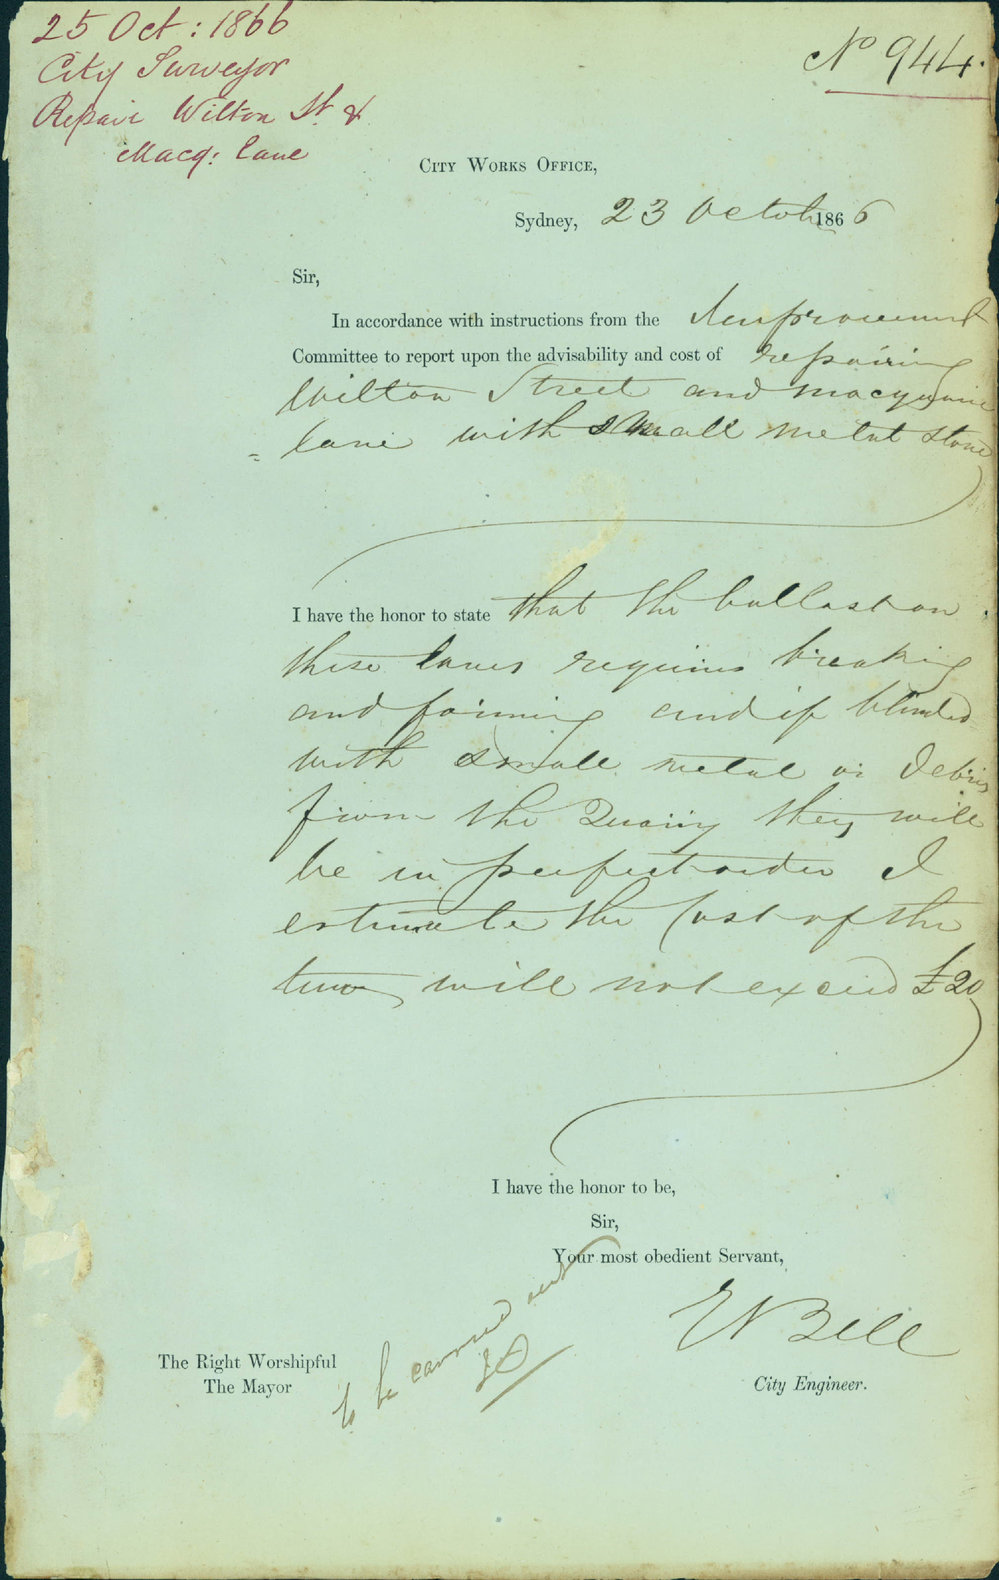 25 Oct : 1866
City Surveyor
Repair Wilton St &
Macq: lane
No 944.
City Works Office,
Sydney, 23 Octob 1866
Sir,
In accordance with instructions from the Improvement
Committee to report upon the advisability and cost of repairing
Wilton Street and macquarie
lane with small metal stone
I have the honor to state that the ballast on
these lanes requires breaking
and forming and if blinded
with small metal or debris
from the Quarry they will
be in perfect order I
estimate the Cost of the
two will not exceed £20
I have the honor to be,
Sir,
Your most obedient Servant,
E Bell
City Engineer.
The Right Worshipful
The Mayor
to be carried out